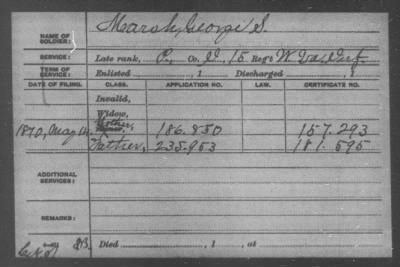 NAME OF SOLDIER: Marsh, George S.
SERVICE: Late rank, P., Co. D, 15 Reg't W. Va. Inf.
TERM OF SERVICE: Enlisted , 1 Discharged , 1
DATE OF FILING. CLASS. APPLICATION NO. LAW. CERTIFICATE NO.
Invalid,
Widow,
1870, May 14 Mother, 186.850 157.293
Father, 235.953 181.595
ADDITIONAL SERVICES:
REMARKS:
Died , 1 , at